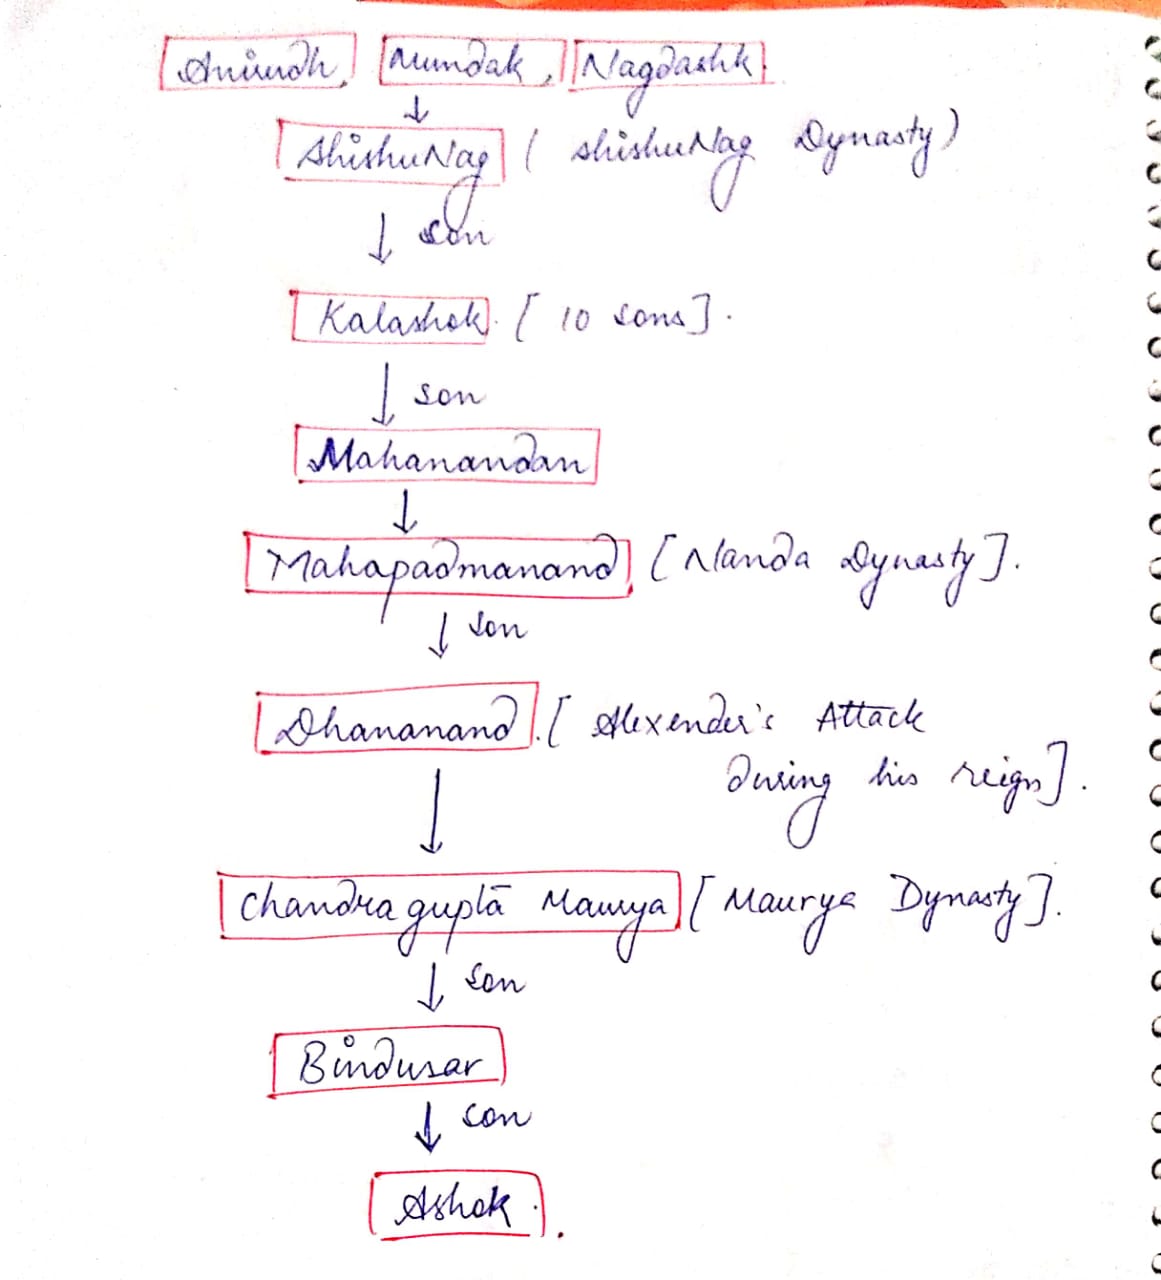 Anirudh, Mundak, Nagdashk.
↓
ShishuNag ( ShishuNag Dynasty )
↓ son
Kalashok. [ 10 sons ].
↓ son
Mahanandan
↓
Mahapadmanand [ Nanda Dynasty ].
↓ son
Dhananand. [ Alexender's Attack
during his reign ].
↓
Chandragupta Maurya [ Maurya Dynasty ].
↓ son
Bindusar
↓ son
Ashok.